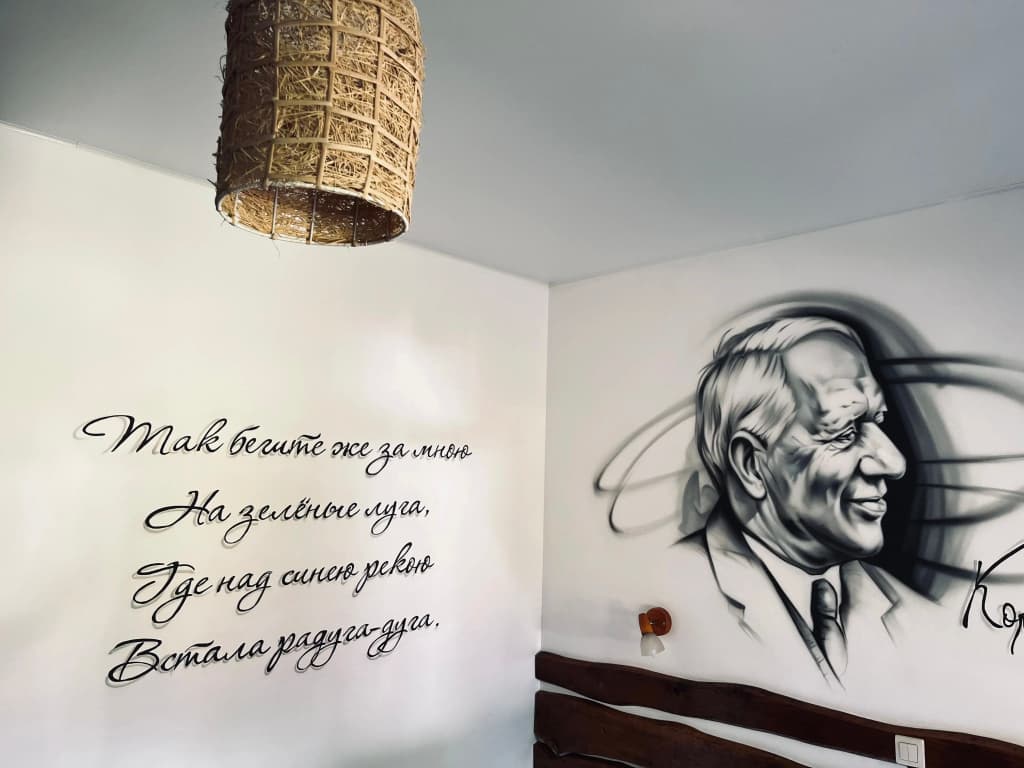 Так бегите же за мною
На зелёные луга,
Где над синею рекою
Встала радуга-дуга.